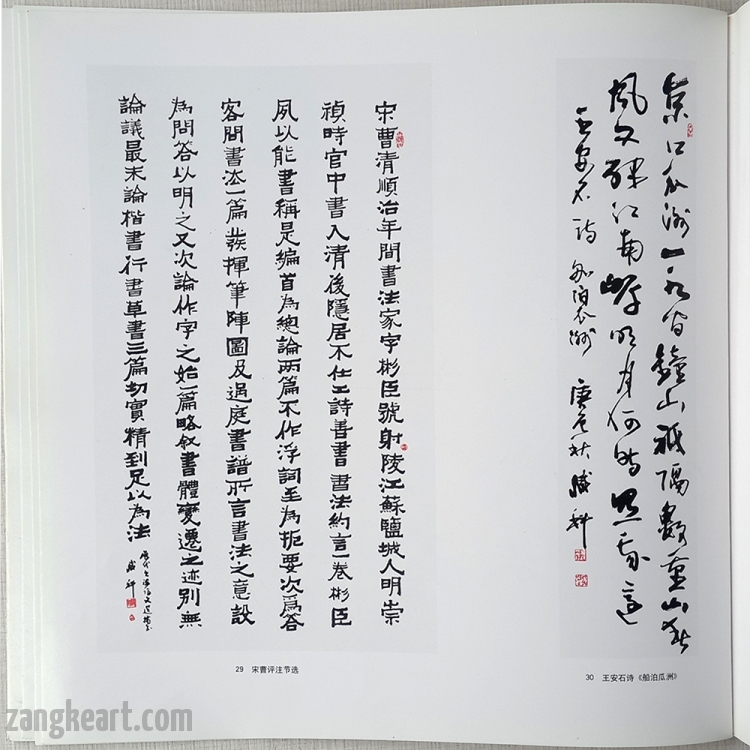 宋曹清順治年間書法家字彬臣號射陵江蘇鹽城人明崇
禎時官中書入清後隱居不仕工詩善書書法約言一卷彬臣
夙以能書稱是編首為總論兩篇不作浮詞至為扼要次為答
客問書法一篇發揮筆陣圖及過庭書譜所言書法之意設
為問答以明之又次論作字之始一篇略叙書體變遷之迹別無
論議最末論楷書行書草書三篇切實精到足以為法
29 宋曹评注节选
京口瓜洲一水间鐘山祇隔數重山春
風又绿江南岸明月何時照我還
王安石詩 船泊瓜洲 庚辰秋
30 王安石诗《船泊瓜洲》
zangkeart.com